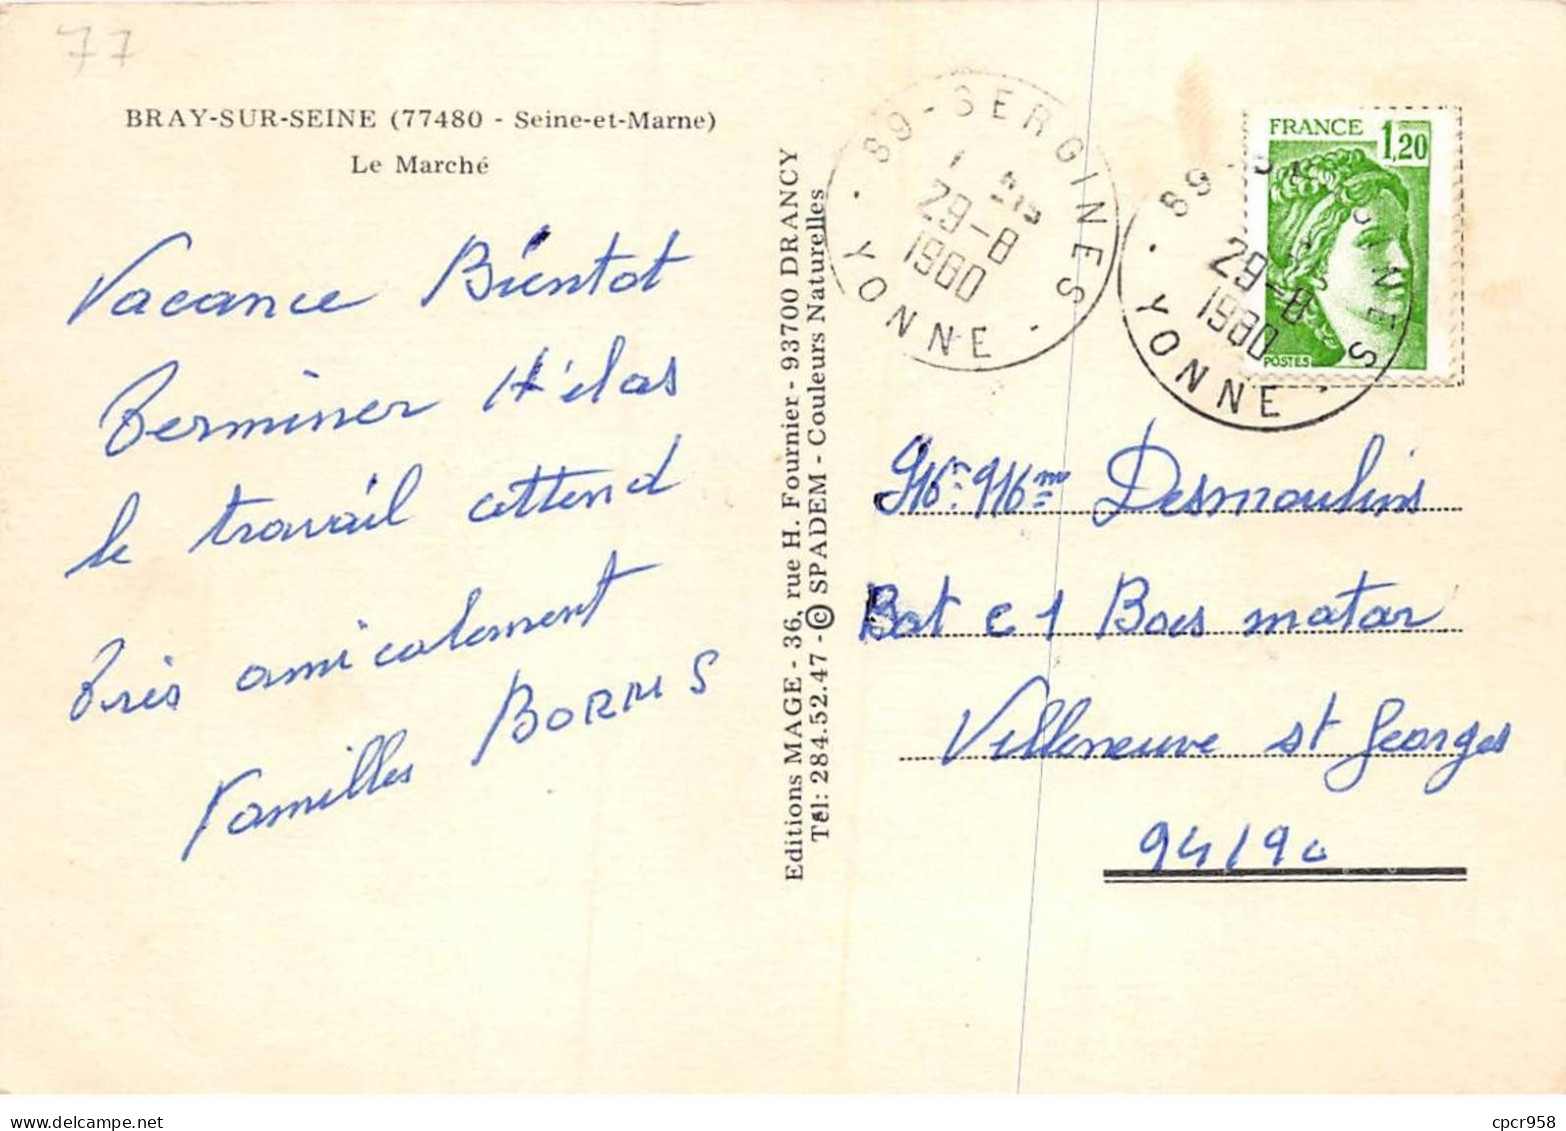 77
BRAY-SUR-SEINE (77480 - Seine-et-Marne)
Le Marché
Vacance Bientot
Terminer H'élas
le travail attend
Très amicalement
Familles BORNS
Editions MAGE - 36, rue H. Fournier - 93700 DRANCY
Tél: 284.52.47 - © SPADEM - Couleurs Naturelles
89-SERGINES
29-8
1980
YONNE
FRANCE
1,20
POSTES
89-SERGINES
29-8
1980
YONNE
Mr Mme Desmoulins
Bat C1 Bois matar
Villeneuve st Georges
94190
Delcampe.net
cpcr958